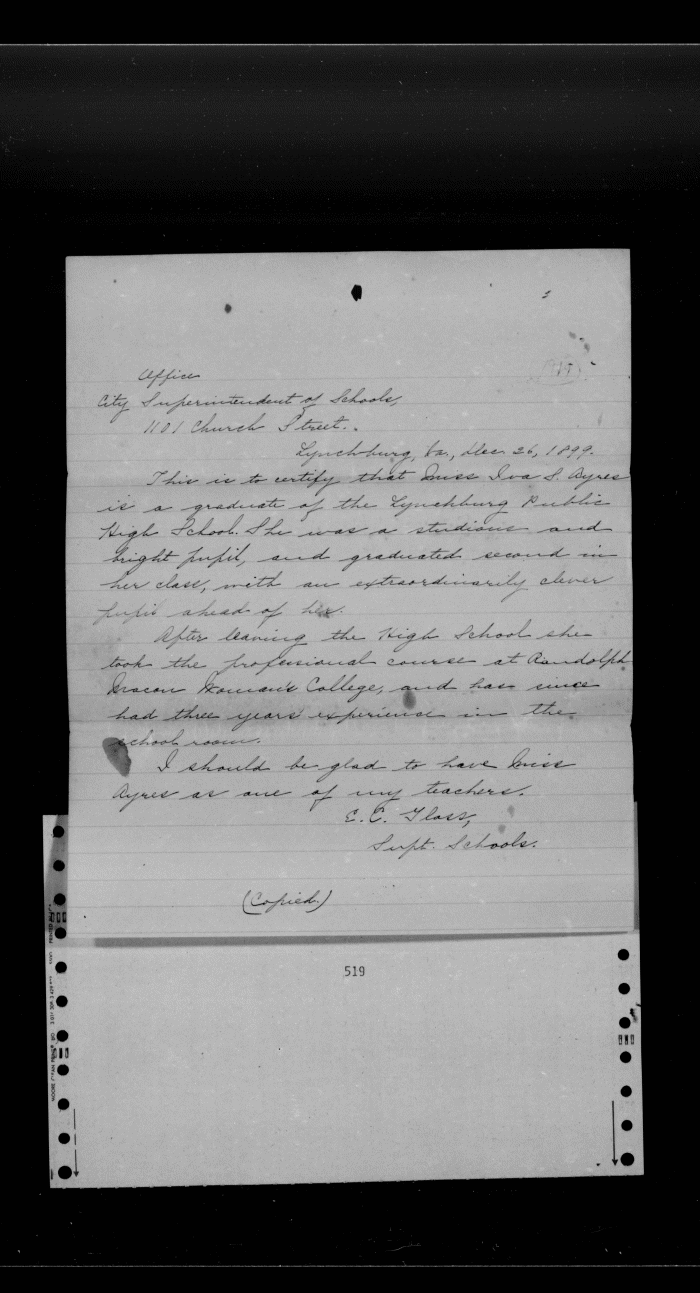 Office
City Superintendent of Schools,
1101 Church Street.
Lynchburg, Va., Dec. 26, 1899.
This is to certify that Miss Iva S. Ayres
is a graduate of the Lynchburg Public
High School. She was a studious and
bright pupil, and graduated second in
her class, with an extraordinarily clever
pupil ahead of her.
After leaving the High School she
took the professional course at Randolph
Macon Woman's College, and has since
had three years' experience in the
school room.
I should be glad to have Miss
Ayres as one of my teachers.
E. C. Glass,
Supt. Schools.
(Copied.)
519